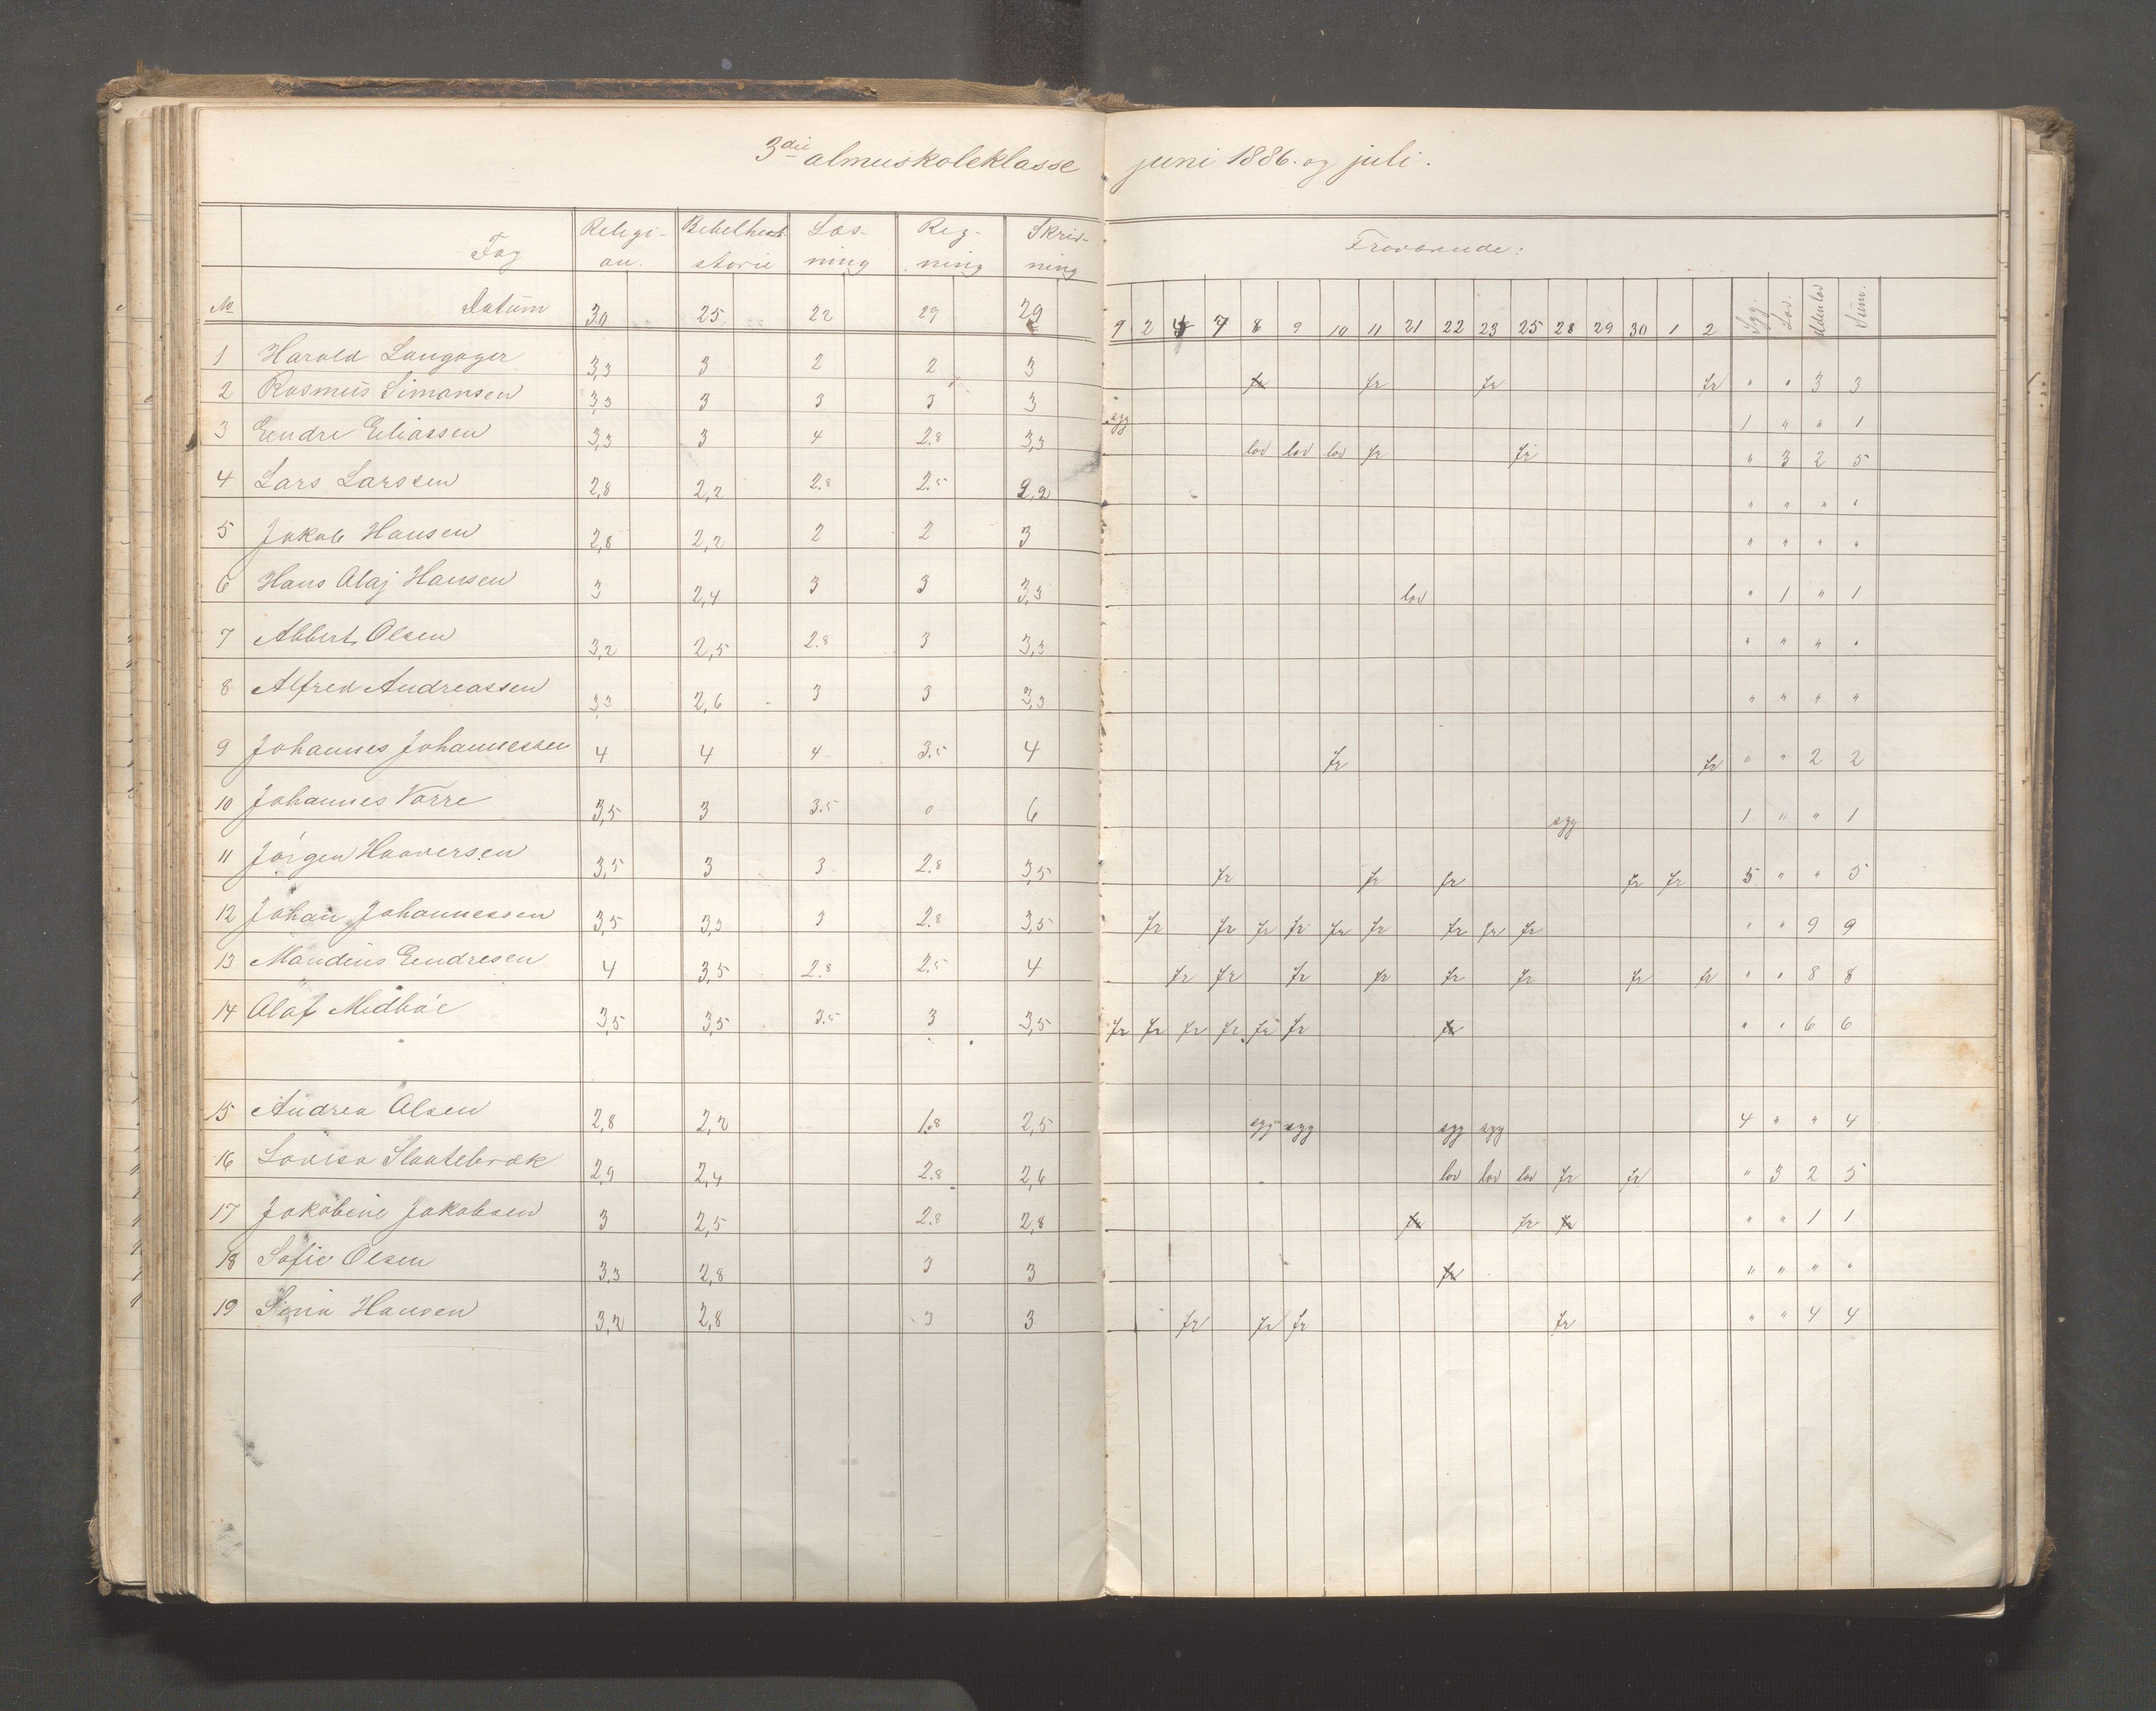 3die almuskoleklasse juni 1886. og juli.
Fag Religi- Bibelhi- Læs- Reg- Skriv- Fraværende:
on. storie ning ning ning
No Datum 30 25 22 29 29 1 2 4 7 8 9 10 11 21 22 23 25 28 29 30 1 2 Syg. Lov. Udenlov Sum.
1 Harald Langager 3,3 3 2 2 3 fr fr fr fr " " 3 3
2 Rasmus Simonsen 3,3 3 3 3 3 syg 1 " " 1
3 Endre Eliassen 3,3 3 4 2.8 3,3 lov lov lov fr fr " 3 2 5
4 Lars Larssen 2,8 2,2 2.8 2.5 2,2 " " " "
5 Jakob Hansen 2,8 2,2 2 2 3 " " " "
6 Hans Olaj Hansen 3 2,4 3 3 3,3 lov " 1 " 1
7 Abbert Olsen 3,2 2,5 2.8 3 3,3 " " " "
8 Alfred Andreassen 3,3 2,6 3 3 3,3 " " " "
9 Johannes Johannessen 4 4 4 3.5 4 fr fr " " 2 2
10 Johannes Varre 3,5 3 3.5 0 6 syg 1 " " 1
11 Jørgen Haaversen 3,5 3 3 2.8 3,5 fr fr fr fr fr 5 " " 5
12 Johan Johannessen 3,5 3,3 3 2.8 3,5 fr fr fr fr fr fr fr fr fr " " 9 9
13 Maudius Endresen 4 3,5 2.8 2.5 4 fr fr fr fr fr fr fr fr " " 8 8
14 Olaf Midbøe 3,5 3,5 3.5 3 3,5 fr fr fr fr fr fr fr " " 6 6
15 Andrea Olsen 2,8 2,2 1.8 2,5 syg syg syg syg 4 " " 4
16 Lovisa Slaatebræk 2,9 2,4 2.8 2,6 lov lov lov fr fr " 3 2 5
17 Jakobine Jakobsen 3 2,5 2.8 2,8 fr fr fr " " 1 1
18 Sofie Olsen 3,3 2,8 3 3 fr " " " "
19 Sina Hansen 3,2 2,8 3 3 fr fr fr fr " " 4 4